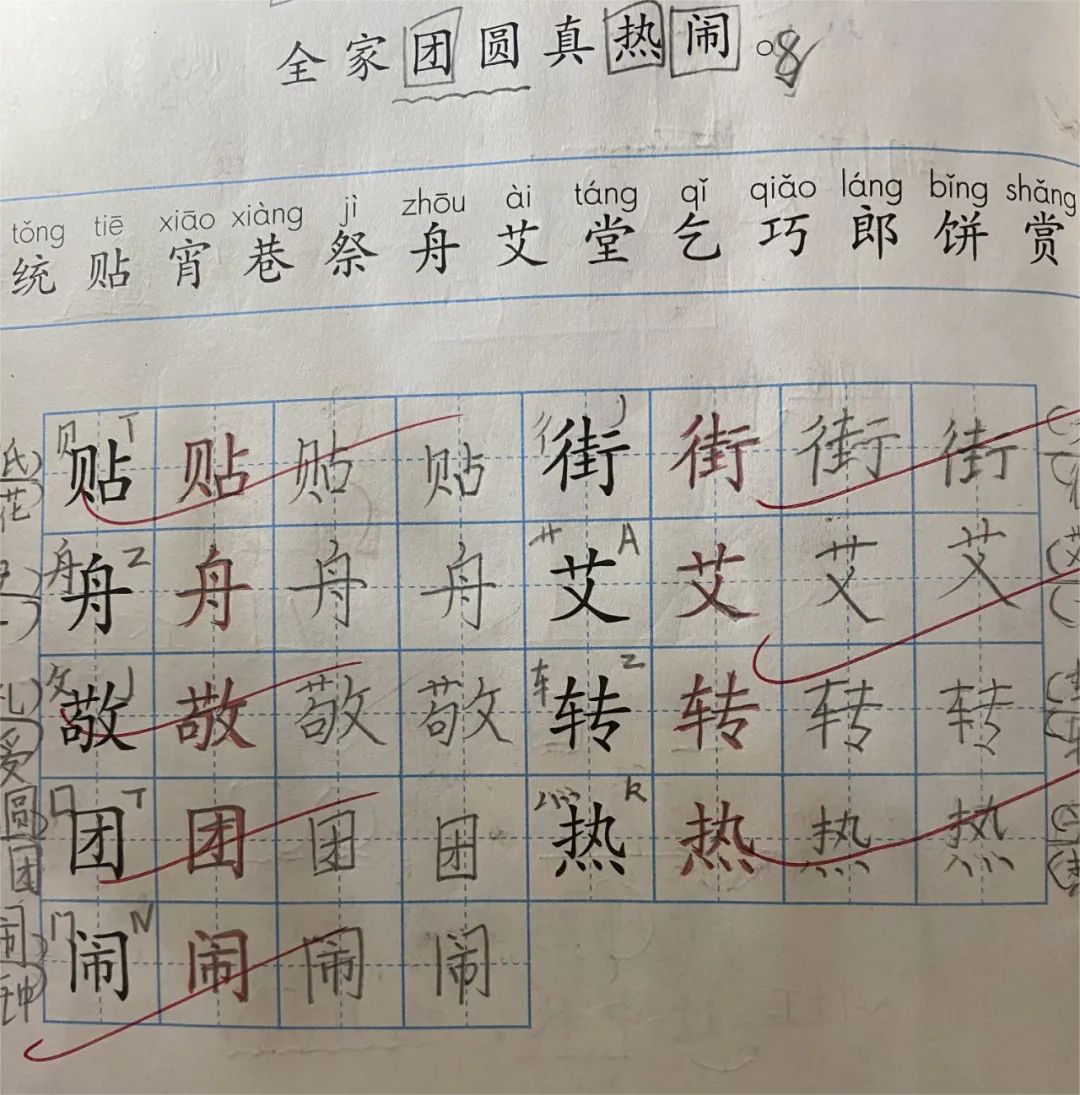 全家团圆真热闹。8
tǒng tiē xiāo xiàng jì zhōu ài táng qǐ qiǎo láng bǐng shǎng
统贴宵巷祭舟艾堂乞巧郎饼赏
贝 T 贴贴贴贴 彳 J 街街街街
花
舟 Z 舟舟舟舟 艹 A 艾艾艾艾
攵 J 敬敬敬敬 车 Z 转转转转
爱
囗 T 团团团团 灬 R 热热热热
圆
团
门 N 闹闹闹闹
闹
钟